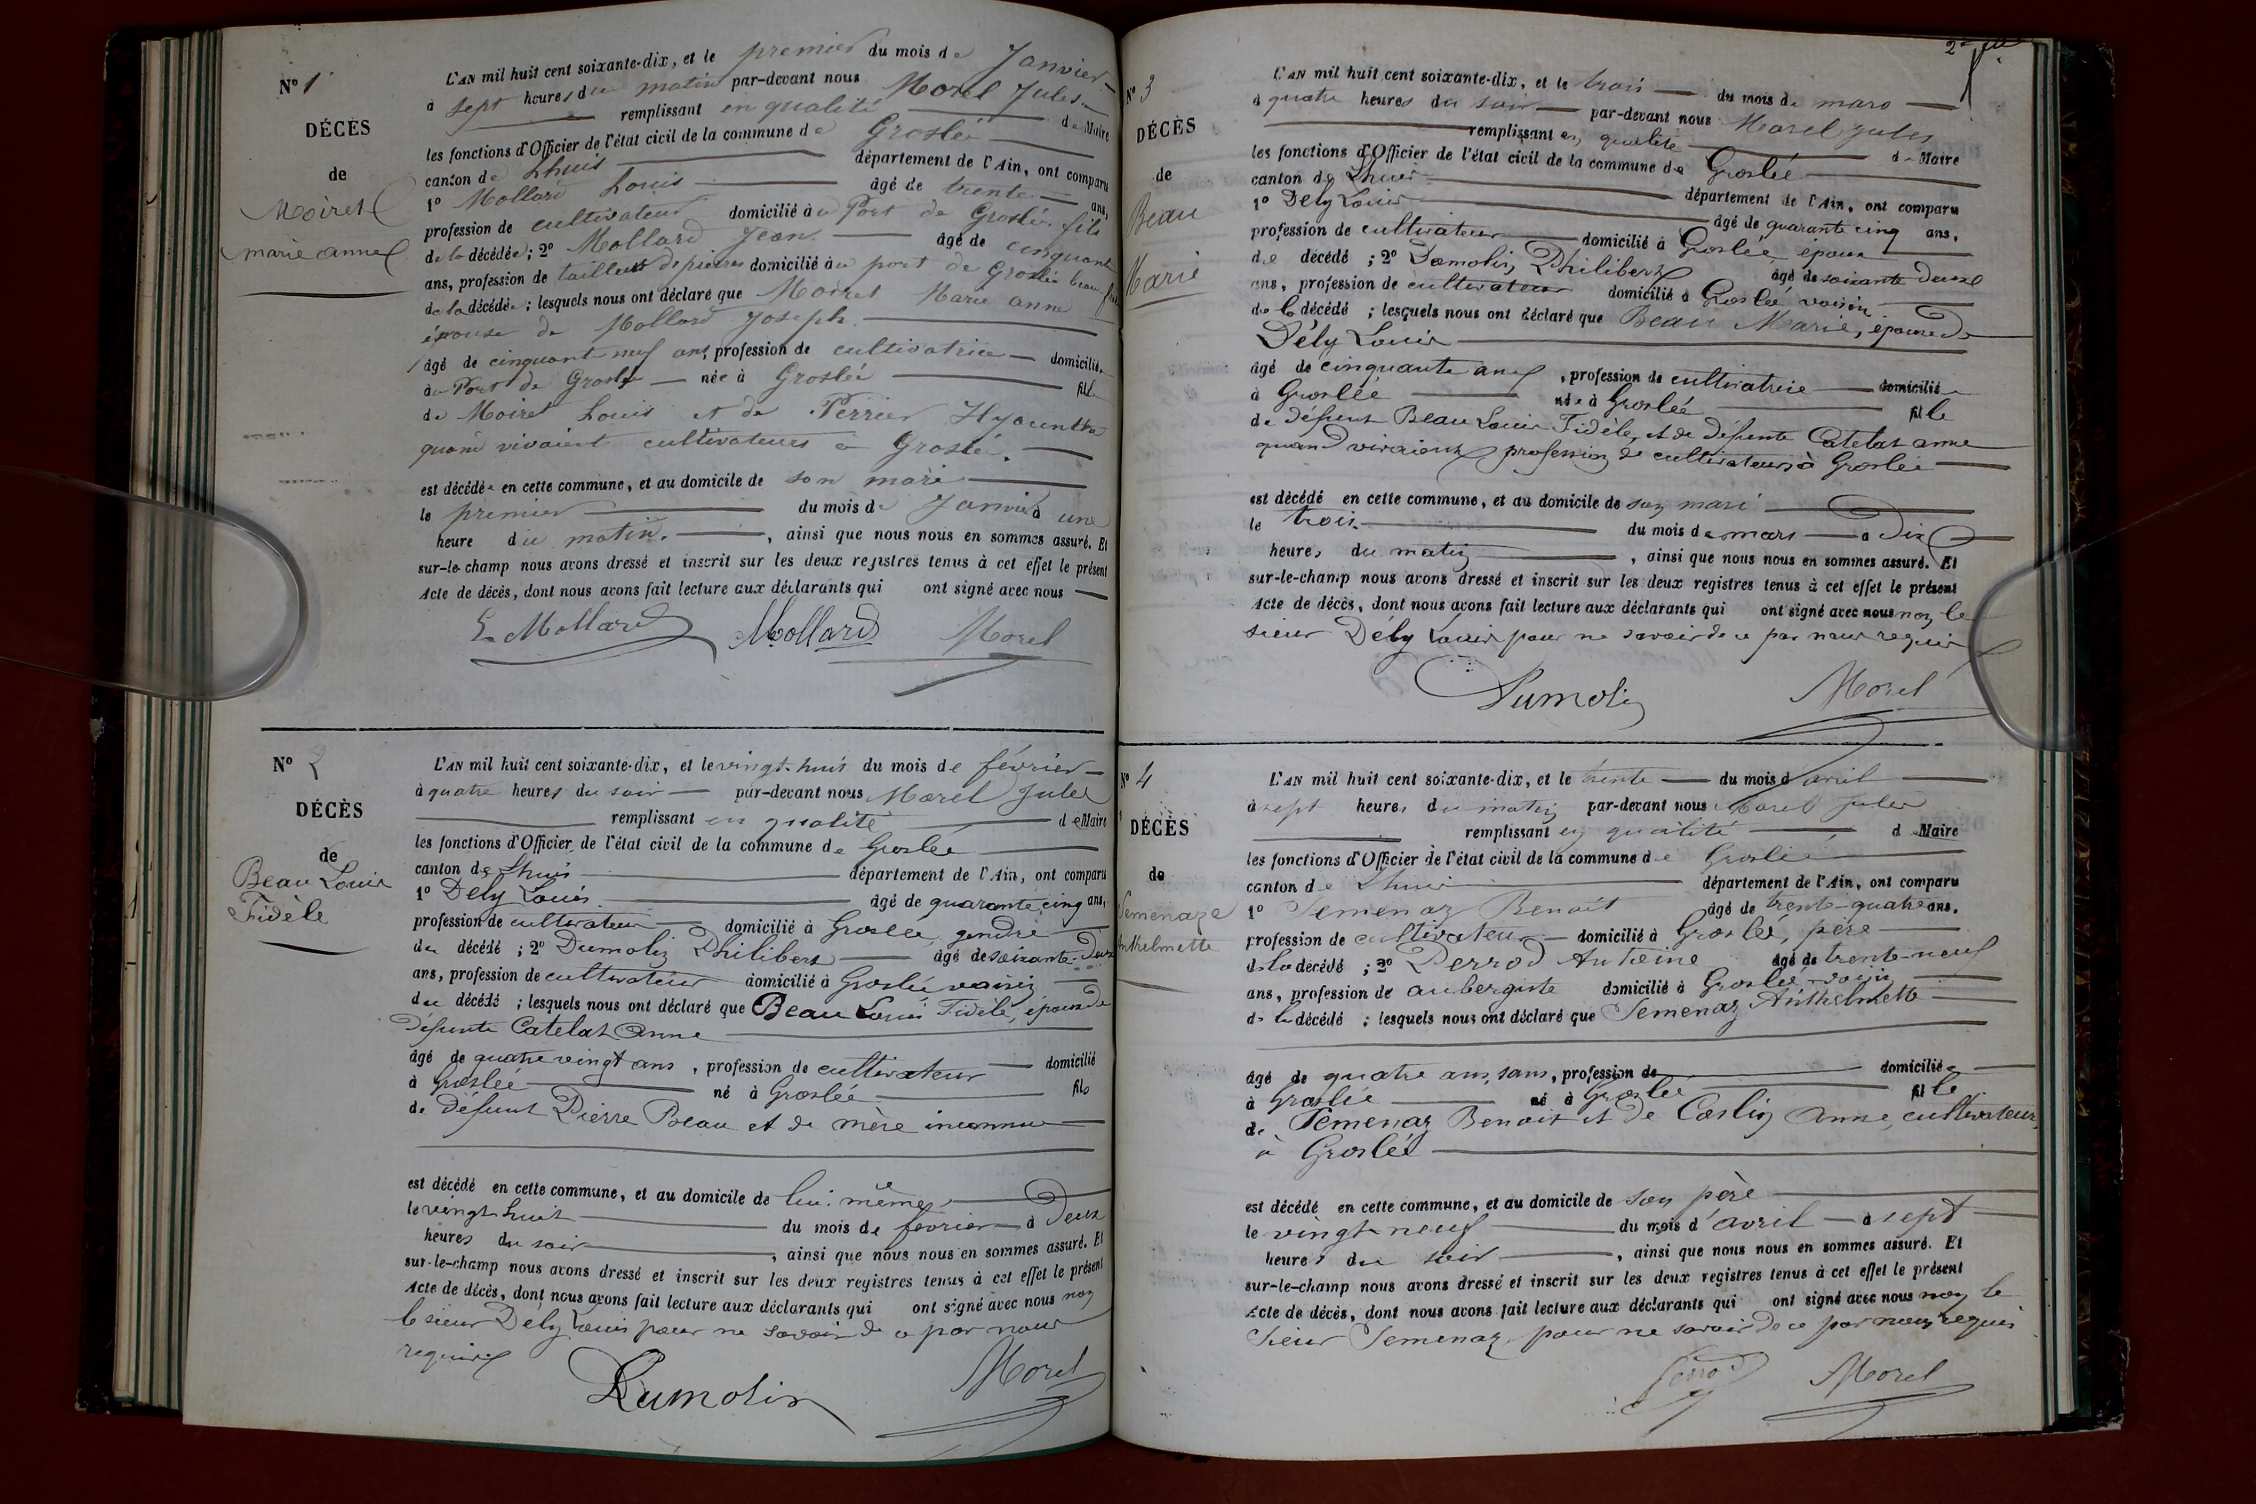 N° 1
DÉCÈS
de
Moiret
marie anne
L'AN mil huit cent soixante-dix, et le premier du mois de Janvier
à sept heures du matin par-devant nous Morel Jules
remplissant en qualité de Maire
les fonctions d'Officier de l'état civil de la commune de Groslée
canton de Lhuis département de l'Ain, ont comparu
1° Mollard Louis âgé de trente ans,
profession de cultivateur domicilié au Port de Groslée fils
de la décédée; 2° Mollard Jean âgé de cinquante
ans, profession de tailleur de pierres domicilié au port de Groslée beau frère
de la décédée; lesquels nous ont déclaré que Moiret Marie anne
épouse de Mollard Joseph
âgé de cinquant neuf ans, profession de cultivatrice domiciliée
au Port de Groslée née à Groslée fille
de Moiret Louis et de Perrier Hyacinthe
quand vivaient cultivateurs à Groslée.
est décédée en cette commune, et au domicile de son mari
le premier du mois de Janvier à une
heure du matin, ainsi que nous nous en sommes assuré. Et
sur-le-champ nous avons dressé et inscrit sur les deux registres tenus à cet effet le présent
Acte de décès, dont nous avons fait lecture aux déclarants qui ont signé avec nous
L Mollard Mollard Morel
N° 2
DÉCÈS
de
Beau Louis
Fidèle
L'AN mil huit cent soixante-dix, et le vingt-huit du mois de février
à quatre heures du soir par-devant nous Morel Jules
remplissant en qualité de Maire
les fonctions d'Officier de l'état civil de la commune de Groslée
canton de Lhuis département de l'Ain, ont comparu
1° Dély Louis âgé de quarante cinq ans,
profession de cultivateur domicilié à Groslée, gendre
du décédé; 2° Dumolin Philibert âgé de soixante-deux
ans, profession de cultivateur domicilié à Groslée voisin
du décédé; lesquels nous ont déclaré que Beau Louis Fidèle, époux de
défunte Catelat anne
âgé de quatre vingt ans, profession de cultivateur domicilié
à Groslée né à Groslée fils
de défunt Pierre Beau et de mère inconnue
est décédé en cette commune, et au domicile de lui-même
le vingt huit du mois de fevrier à deux
heures du soir, ainsi que nous nous en sommes assuré. Et
sur-le-champ nous avons dressé et inscrit sur les deux registres tenus à cet effet le présent
Acte de décès, dont nous avons fait lecture aux déclarants qui ont signé avec nous non
le sieur Dély Louis pour ne savoir de ce par nous
requis
Dumolin Morel
N° 3
DÉCÈS
de
Beau
Marie
L'AN mil huit cent soixante-dix, et le trois du mois de mars
à quatre heures du soir par-devant nous Morel Jules
remplissant en qualité de Maire
les fonctions d'Officier de l'état civil de la commune de Groslée
canton de Lhuis département de l'Ain, ont comparu
1° Dély Louis âgé de quarante cinq ans,
profession de cultivateur domicilié à Groslée, époux
de décédé; 2° Dumolin Philibert âgé de soixante deux
ans, profession de cultivateur domicilié à Groslée voisin
de la décédé; lesquels nous ont déclaré que Beau Marie, épouse de
Dély Louis
âgé de cinquante ans, profession de cultivatrice domicilié
à Groslée née à Groslée fille
de défunt Beau Louis Fidèle, et de défunte Catelat anne
quand vivaient profession de cultivateurs à Groslée
est décédé en cette commune, et au domicile de son mari
le trois du mois de mars à dix
heures du matin, ainsi que nous nous en sommes assuré. Et
sur-le-champ nous avons dressé et inscrit sur les deux registres tenus à cet effet le présent
Acte de décès, dont nous avons fait lecture aux déclarants qui ont signé avec nous non le
sieur Dély Louis pour ne savoir de ce par nous requis
Dumolin Morel
N° 4
DÉCÈS
de
Semenaze
Anthelmette
L'AN mil huit cent soixante-dix, et le trente du mois d'avril
à sept heures du matin par-devant nous Morel Jules
remplissant en qualité de Maire
les fonctions d'Officier de l'état civil de la commune de Groslée
canton de Lhuis département de l'Ain, ont comparu
1° Semenaz Benoit âgé de trente-quatre ans,
profession de cultivateur domicilié à Groslée, père
de la décédé; 2° Perrod Antoine âgé de trente-neuf
ans, profession de aubergiste domicilié à Groslée, voisin
de la décédé; lesquels nous ont déclaré que Semenaz Anthelmette
âgé de quatre ans, sans, profession de domiciliée
à Groslée né à Groslée fille
de Semenaz Benoit et de Coslin Anne, cultivateurs
à Groslée
est décédé en cette commune, et au domicile de son père
le vingt neuf du mois d'avril à sept
heures du soir, ainsi que nous nous en sommes assuré. Et
sur-le-champ nous avons dressé et inscrit sur les deux registres tenus à cet effet le présent
Acte de décès, dont nous avons fait lecture aux déclarants qui ont signé avec nous non le
sieur Semenaz, pour ne savoir de ce par nous requis
Perrod Morel